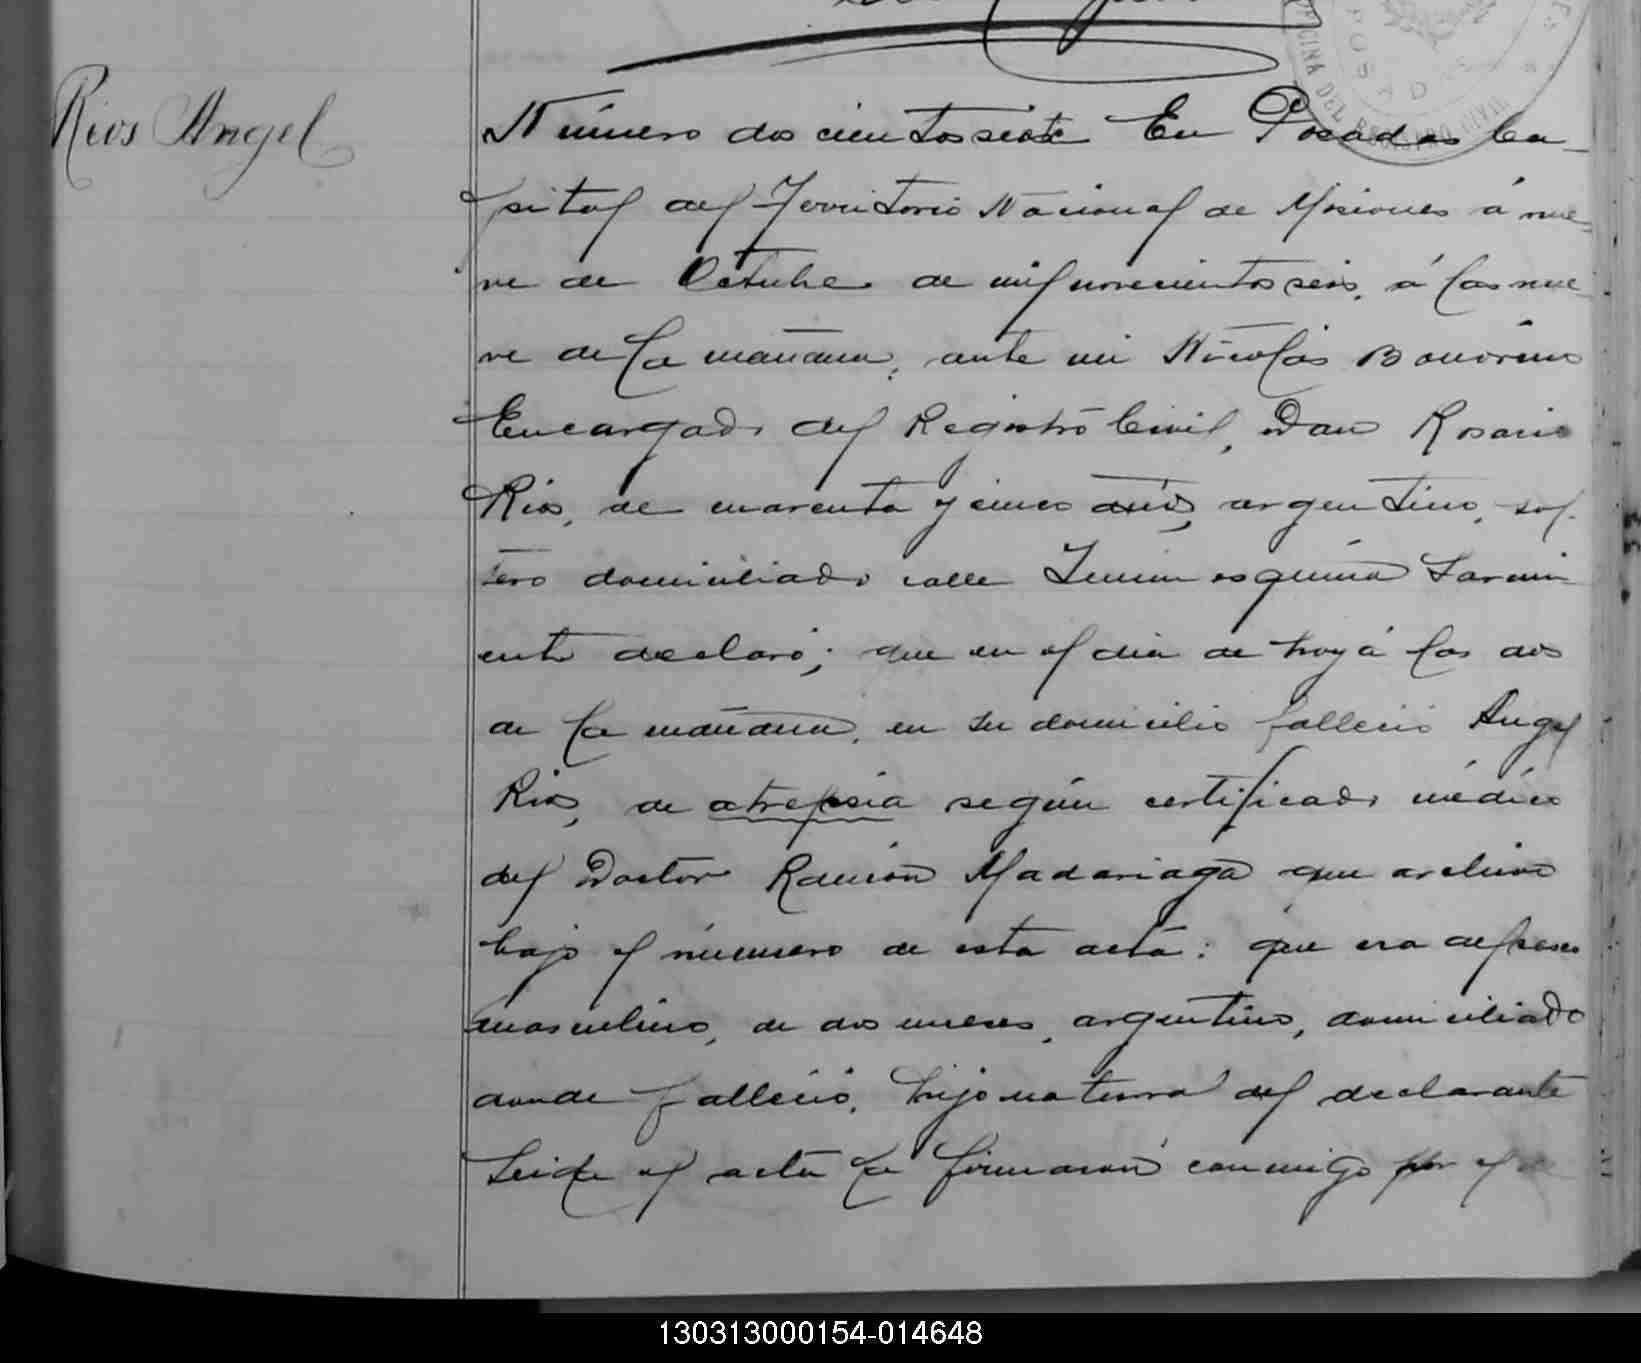 Rios Angel
Número doscientos siete En Posadas Ca-
pital del Territorio Nacional de Misiones á nue-
ve de Octubre de mil novecientos seis, á las nue
ve de la mañana, ante mi Nicolás Bonorino
Encargado del Registro Civil, Don Rosario
Rios, de cuarenta y cinco años, argentino, sol-
tero domiciliado calle Junin esquina Sarmi
ento declaró; que en el dia de hoy á las dos
de la mañana, en su domicilio falleció Angel
Rios, de atrepsia según certificado médico
del Doctor Ramón Madariaga que archivo
bajo el número de esta acta: que era del sexo
masculino, de dos meses, argentino, domiciliado
donde falleció, hijo natural del declarante
Leida el acta la firmaron conmigo por el
OFICINA DEL REGISTRO CIVIL
POSADAS
130313000154-014648